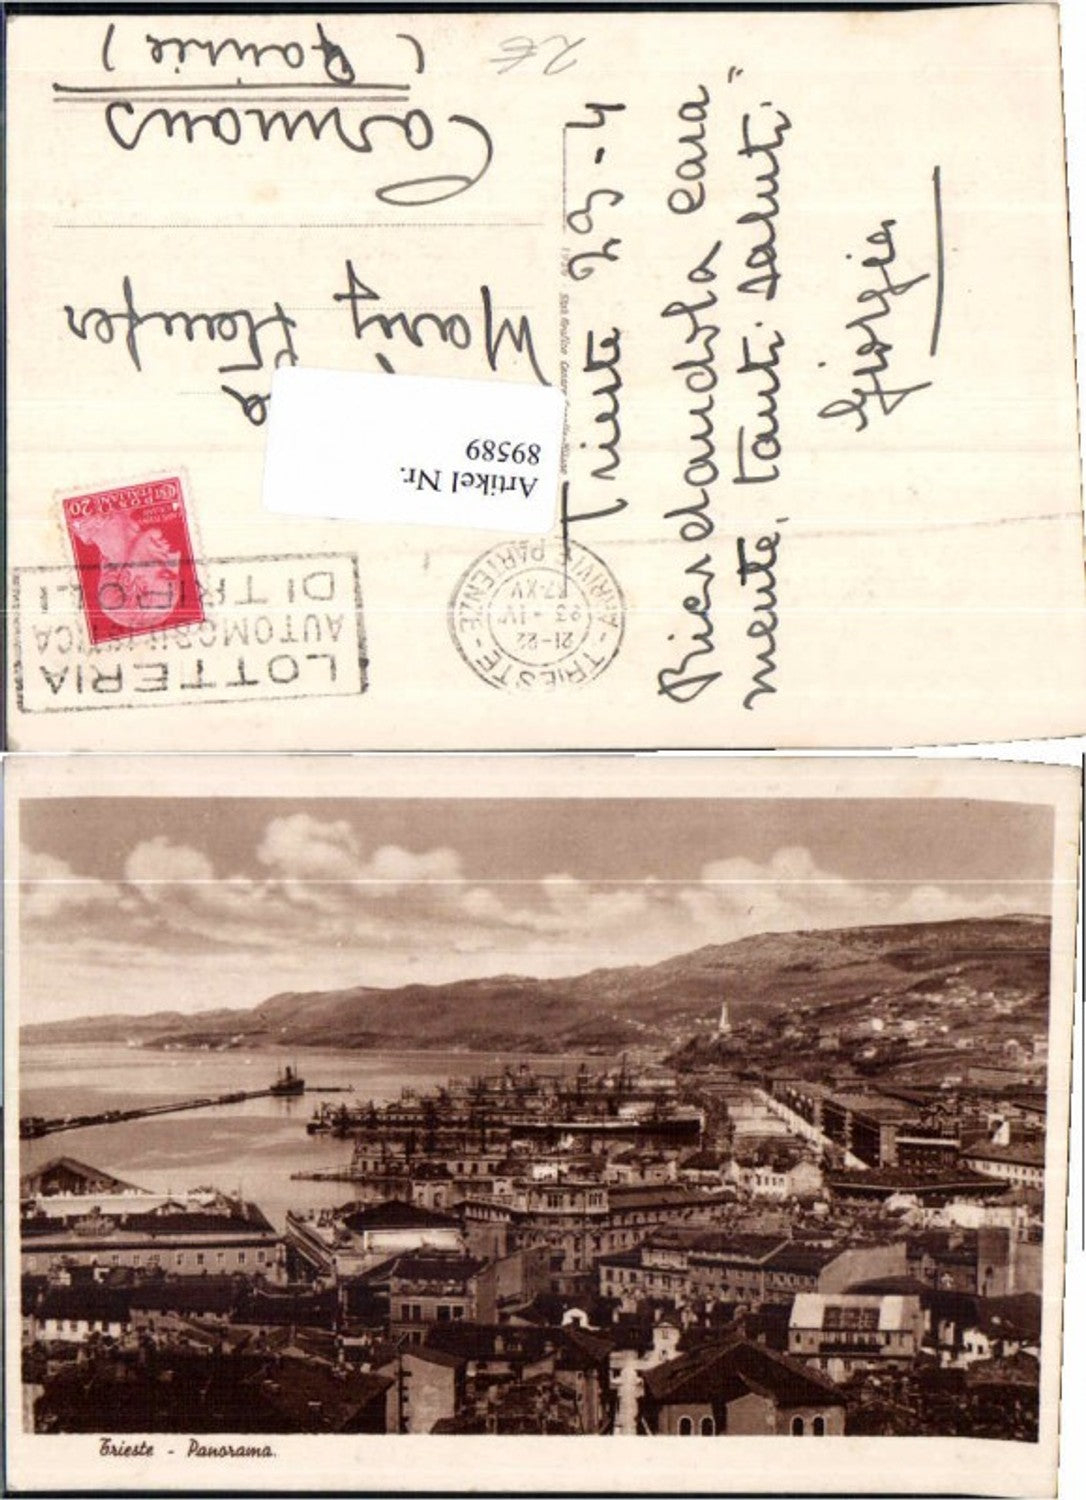 2€
Trieste 23-4
Ricordandola cara"
mente, tanti saluti.
Giorgia
Mariz
Cormons
Artikel Nr.
89589
POSTE
ITALIANE
20
LOTTERIA
AUTOMOBILISTICA
DI TRIPOLI
TRIESTE - ARRIVI E PARTENZE -
21-22
23-IV
37-XV
Trieste - Panorama.